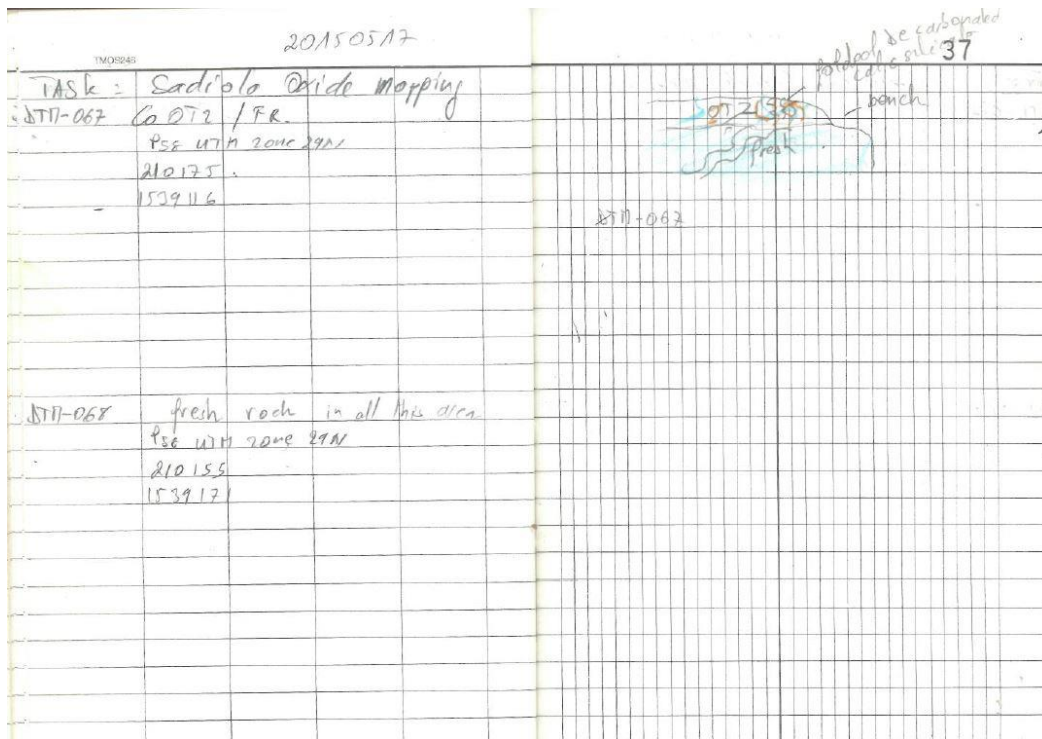 20150517
TMOS246
TASK: Sadiola Oxide mapping
DTM-067 Co OT2 / FR.
PSE UTM zone 29N
210175.
1539116
DTM-068 fresh rock in all this area
PSE UTM zone 29N
210155
153917
37
foldool de carbonated
calc silicate
bench
OT2
fresh
DTM-067